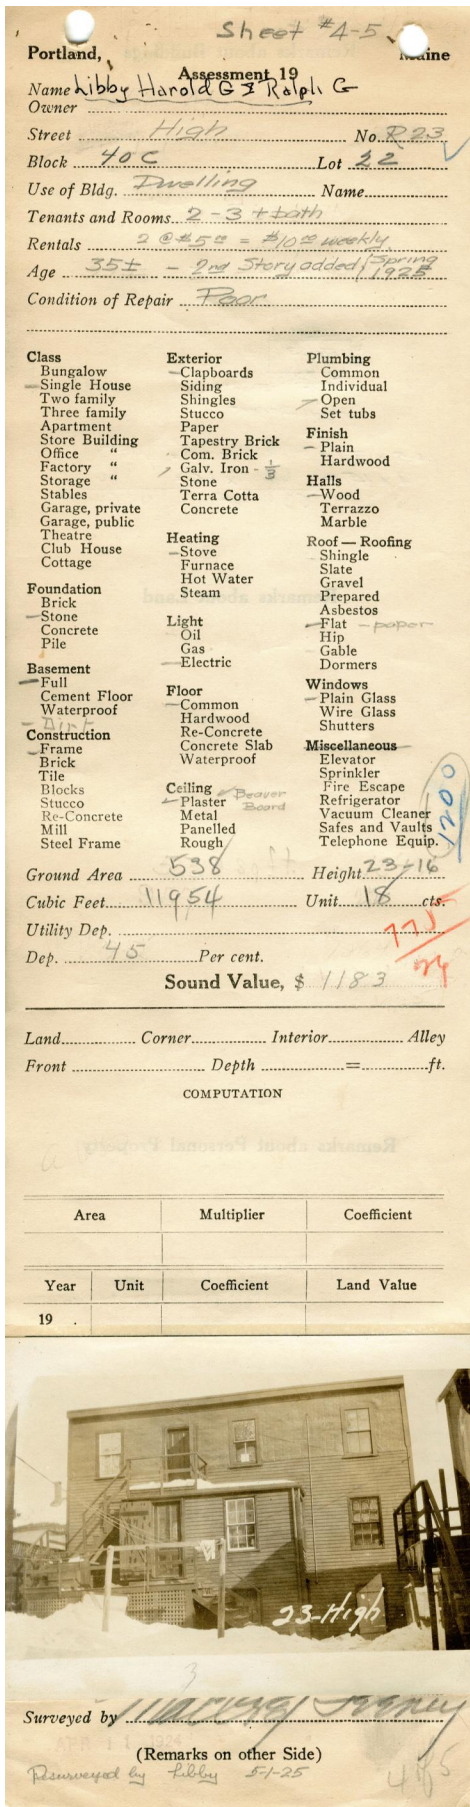 Sheet #4-5
Portland, Maine
Assessment 19
Name Libby Harold G & Ralph G
Owner
Street High No. R23
Block 40C Lot 22
Use of Bldg. Dwelling Name
Tenants and Rooms 2 - 3 + bath
Rentals 2 @ $5.00 = $10.00 weekly
Age 35± - 2nd Story added, Spring 1925
Condition of Repair Poor
Class
Bungalow
Single House
Two family
Three family
Apartment
Store Building
Office "
Factory "
Storage "
Stables
Garage, private
Garage, public
Theatre
Club House
Cottage
Foundation
Brick
Stone
Concrete
Pile
Basement
Full
Cement Floor
Waterproof
- Dirt
Construction
Frame
Brick
Tile
Blocks
Stucco
Re-Concrete
Mill
Steel Frame
Exterior
Clapboards
Siding
Shingles
Stucco
Paper
Tapestry Brick
Com. Brick
Galv. Iron - 1/3
Stone
Terra Cotta
Concrete
Heating
Stove
Furnace
Hot Water
Steam
Light
Oil
Gas
Electric
Floor
Common
Hardwood
Re-Concrete
Concrete Slab
Waterproof
Ceiling
Plaster Beaver Board
Metal
Panelled
Rough
Plumbing
Common
Individual
Open
Set tubs
Finish
Plain
Hardwood
Halls
Wood
Terrazzo
Marble
Roof — Roofing
Shingle
Slate
Gravel
Prepared
Asbestos
Flat - paper
Hip
Gable
Dormers
Windows
Plain Glass
Wire Glass
Shutters
Miscellaneous
Elevator
Sprinkler
Fire Escape
Refrigerator
Vacuum Cleaner
Safes and Vaults
Telephone Equip.
1200
Ground Area 538 Height 23-16
Cubic Feet 11954 Unit 18 cts.
Utility Dep. 775
Dep. 45 Per cent.
Sound Value, $ 1183
Land Corner Interior Alley
Front Depth = ft.
COMPUTATION
Area Multiplier Coefficient
Year Unit Coefficient Land Value
19 .
23-High
3
Surveyed by
APR 11 1924
(Remarks on other Side)
Resurveyed by Libby 5-1-25